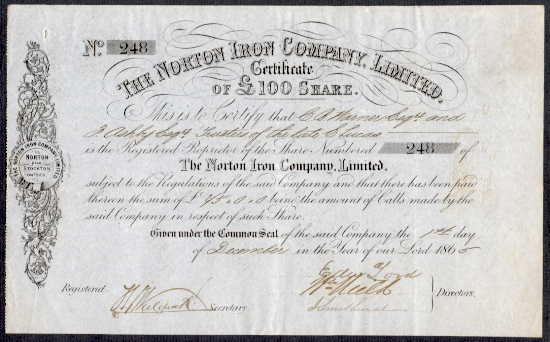 No. 248
THE NORTON IRON COMPANY, LIMITED.
Certificate
OF £100 SHARE.
This is to Certify that C A Warner Esqre and
F Ashby Esqre Trustees of the late C Lucas
is the Registered Proprietor of the Share Numbered 248 of
The Norton Iron Company, Limited.
subject to the Regulations of the said Company and that there has been paid
thereon the sum of £ 95.0.0 being the amount of Calls made by the
said Company in respect of such Share.
Given under the Common Seal of the said Company the 1st day
of December in the Year of our Lord 1865
Registered
Secretary.
Directors.
THE NORTON IRON COMPANY LIMITED
NORTON
STOCKTON